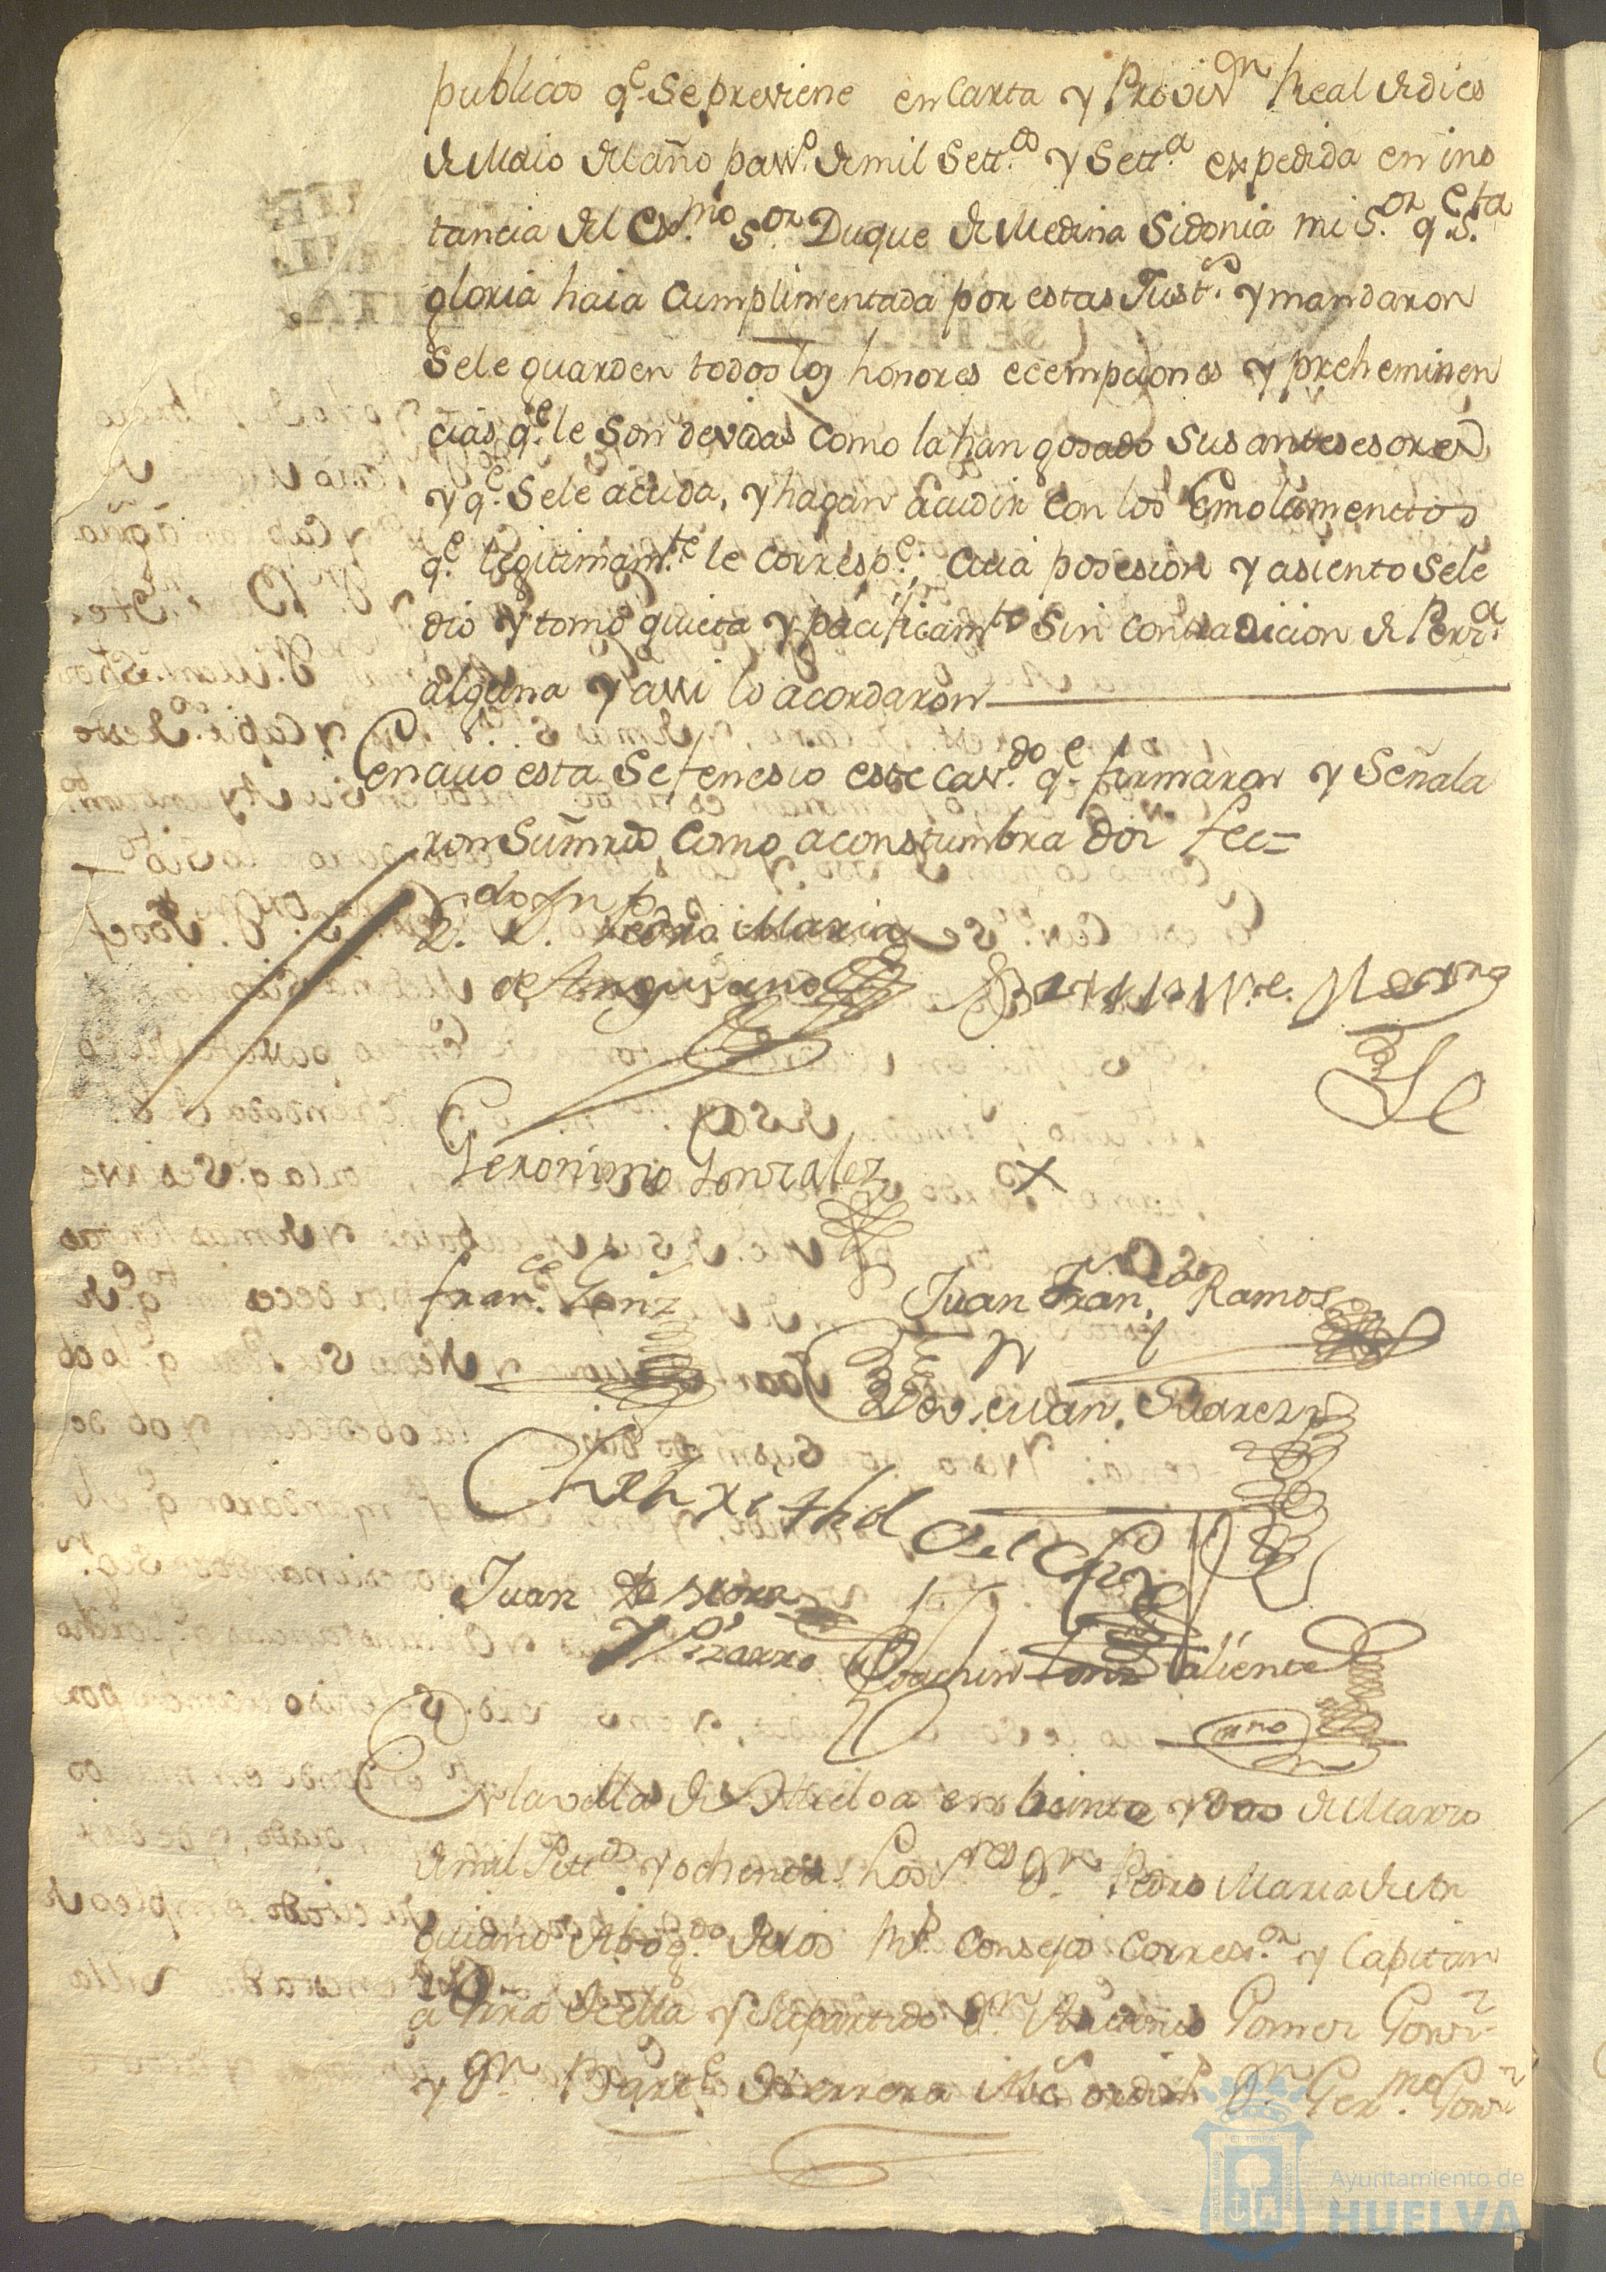 publicos q.e Se previene en Carta y Provi.on Real de dies
de Maio del año pass.o de mil Sett.os y Sett.a expedida en ins
tancia del Ex.mo S.or Duque de Medina Sidonia mi S.or q.e S.ta
gloria haia Cumplimentada por estas Just.s y mandaron
Sele guarden todos los honores ecempciones y preheminen
cias q.e le Son devidas como la han gosado Sus antesesores
y q.e Sele acuda, y hagan acudir con los Emolumenttos
q.e legitimam.te le corresp.e cuia posesion y asiento Sele
dió y tomó quieta y pacificam.te Sin contradicion de Perz.a
alguna y assi lo acordaron
en cuio esta Se fenesio este Cav.do q.e firmaron y Señala
ron Sus mrds Como aconstumbra doi fee=
L.do Dn Pedro Maria
de Anguiano
Geronimo Gonzalez
X
Fran.co Gonz
Juan Fran.co Ramos
Juan Suarez
del
Juan de Mora
y Pizarro
Joachin Gonz Valiente
En la villa de Huelva en beinte y dos de Marzo
de mil Sett.os y ochenta Los S.res Dn Pedro Maria de An
guiano Abog.do de los R.s Consejos Correx.or y Capitan
a Grâ de ella y Su partido Dn Gomez Gonz
y Dn Bart.e de Herrera Alc.s ordin.s Dn Ger.mo Gonz
Ayuntamiento de
HUELVA